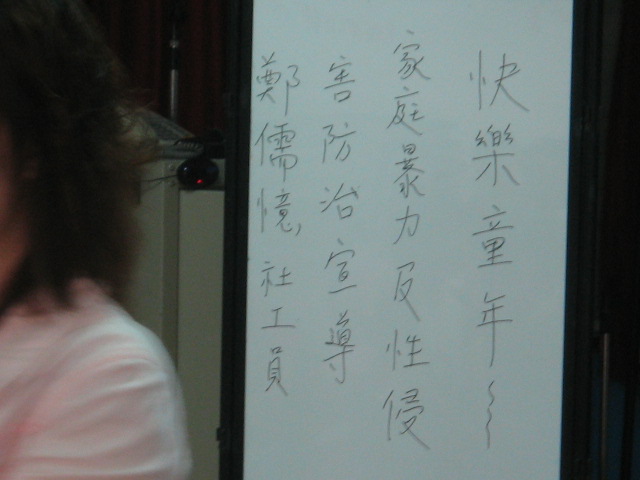 快樂童年～
家庭暴力及性侵
害防治宣導
鄭儒憶, 社工員